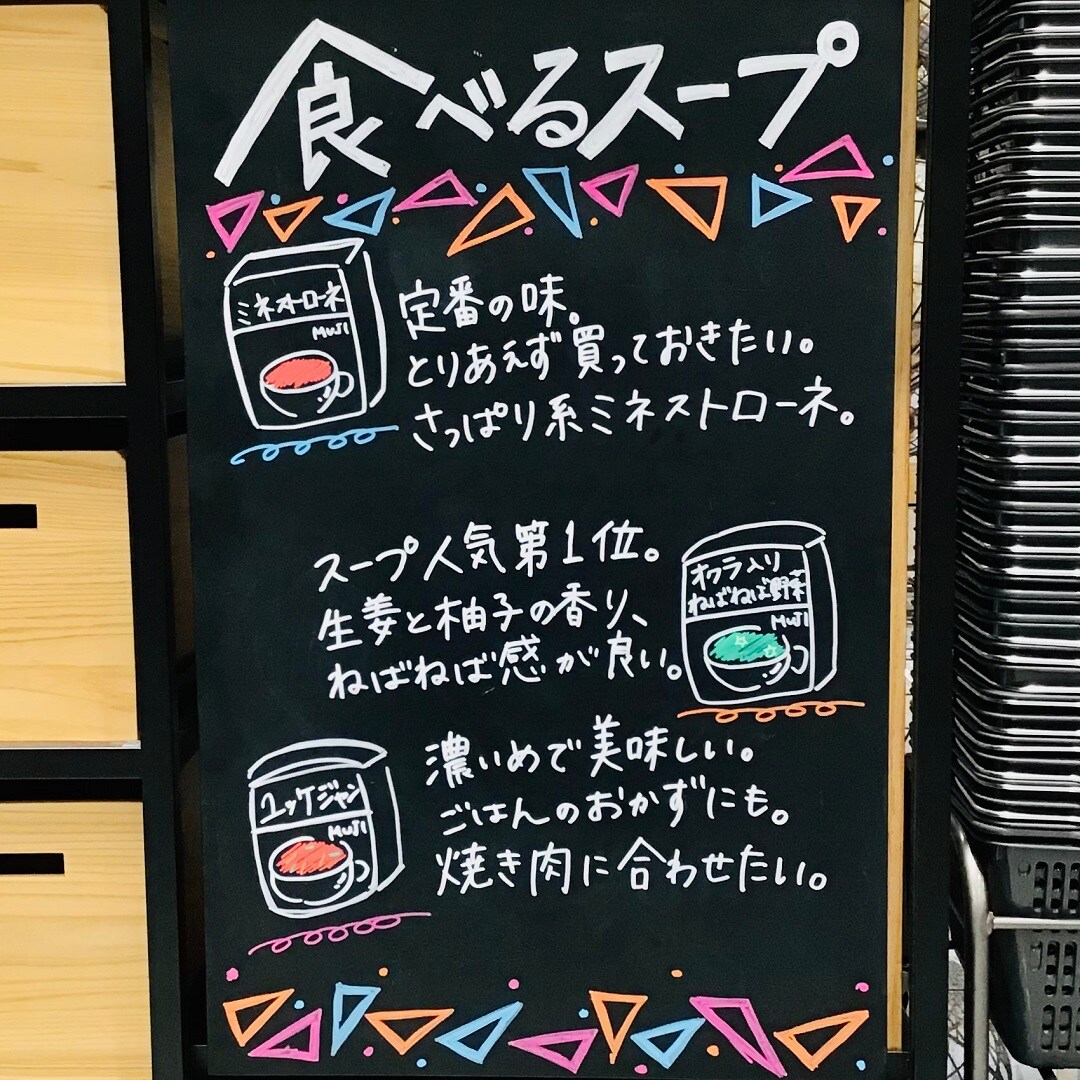 食べるスープ
ミネストローネ
MUJI
定番の味。
とりあえず買っておきたい。
さっぱり系ミネストローネ。
スープ人気第1位。
生姜と柚子の香り、
ねばねば感が良い。
オクラ入り
ねばねば野菜
MUJI
ユッケジャン
MUJI
濃いめで美味しい。
ごはんのおかずにも。
焼き肉に合わせたい。